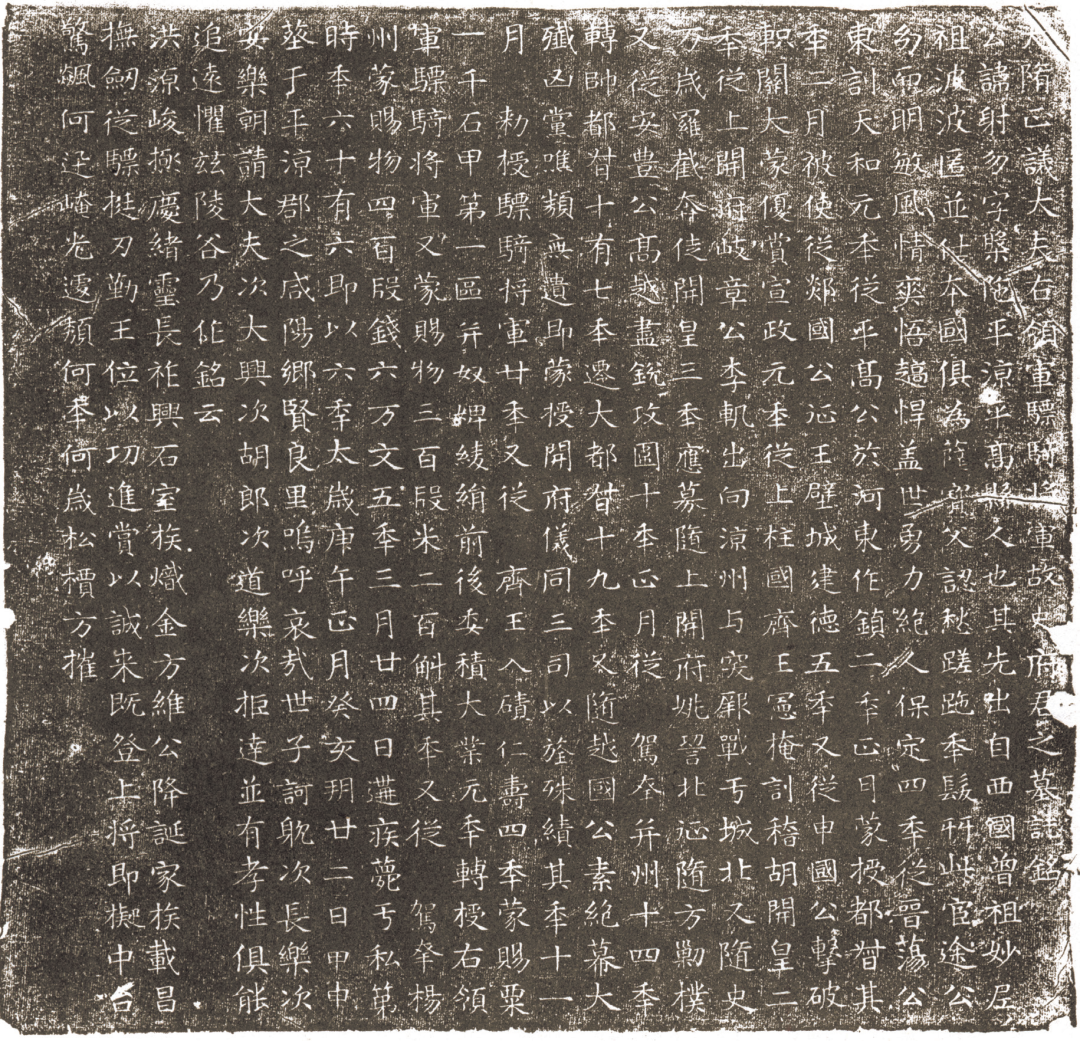 大隋正議大夫右領軍驃騎將軍故史府君之墓誌銘
公諱射勿字槃陁平涼平髙縣人也其先出自西國曾祖妙尼
祖波波匿並仕本國俱為薩寶父認愁蹉跎年髮舛此宦途公
幼而明敏風情爽悟趫悍盖世勇力絕人保定四年從晉蕩公
東討天和元年從平髙公於河東作鎮二年正月蒙授都督其
年二月被使從郯國公征玉壁城建德五年又從申國公擊破
軹關大蒙優賞宣政元年從上柱國齊王憲掩討稽胡開皇二
年從上開府岐章公李軌出向涼州与突厥戰于城北又隨史
万歲羅截奔徒開皇三年應募隨上開府姚辯北征隨方勦撲
又從安豊公髙越盡銳攻圍十年正月從 駕奉并州十四年
轉帥都督十有七年遷大都督十九年又隨越國公素絕幕大
殲凶黨噍類無遺即蒙授開府儀同三司以旌殊績其年十一
月 敕授驃騎將軍廿年又從 齊王入磧仁壽四年蒙賜粟
一千石甲第一區并奴婢綾絹前後委積大業元年轉授右領
軍驃騎將軍又蒙賜物三百段米二百斛其年又從 駕幸楊
州蒙賜物四百段錢六万文五年三月廿四日遘疾薨于私第
時年六十有六即以六年太歲庚午正月癸亥朔廿二日甲申
葬于平涼郡之咸陽鄉賢良里嗚呼哀哉世子訶耽次長樂次
安樂朝請大夫次大興次胡郎次道樂次拒達並有孝性俱能
追遠懼茲陵谷乃作銘云
洪源峻極慶緒靈長祚興石室族熾金方維公降誕家族載昌
撫劒從驃挺刃勤王位以功進賞以誠来既登上將即擬中台
驚飆何迅崦光遽頹何年何歲松檟方摧